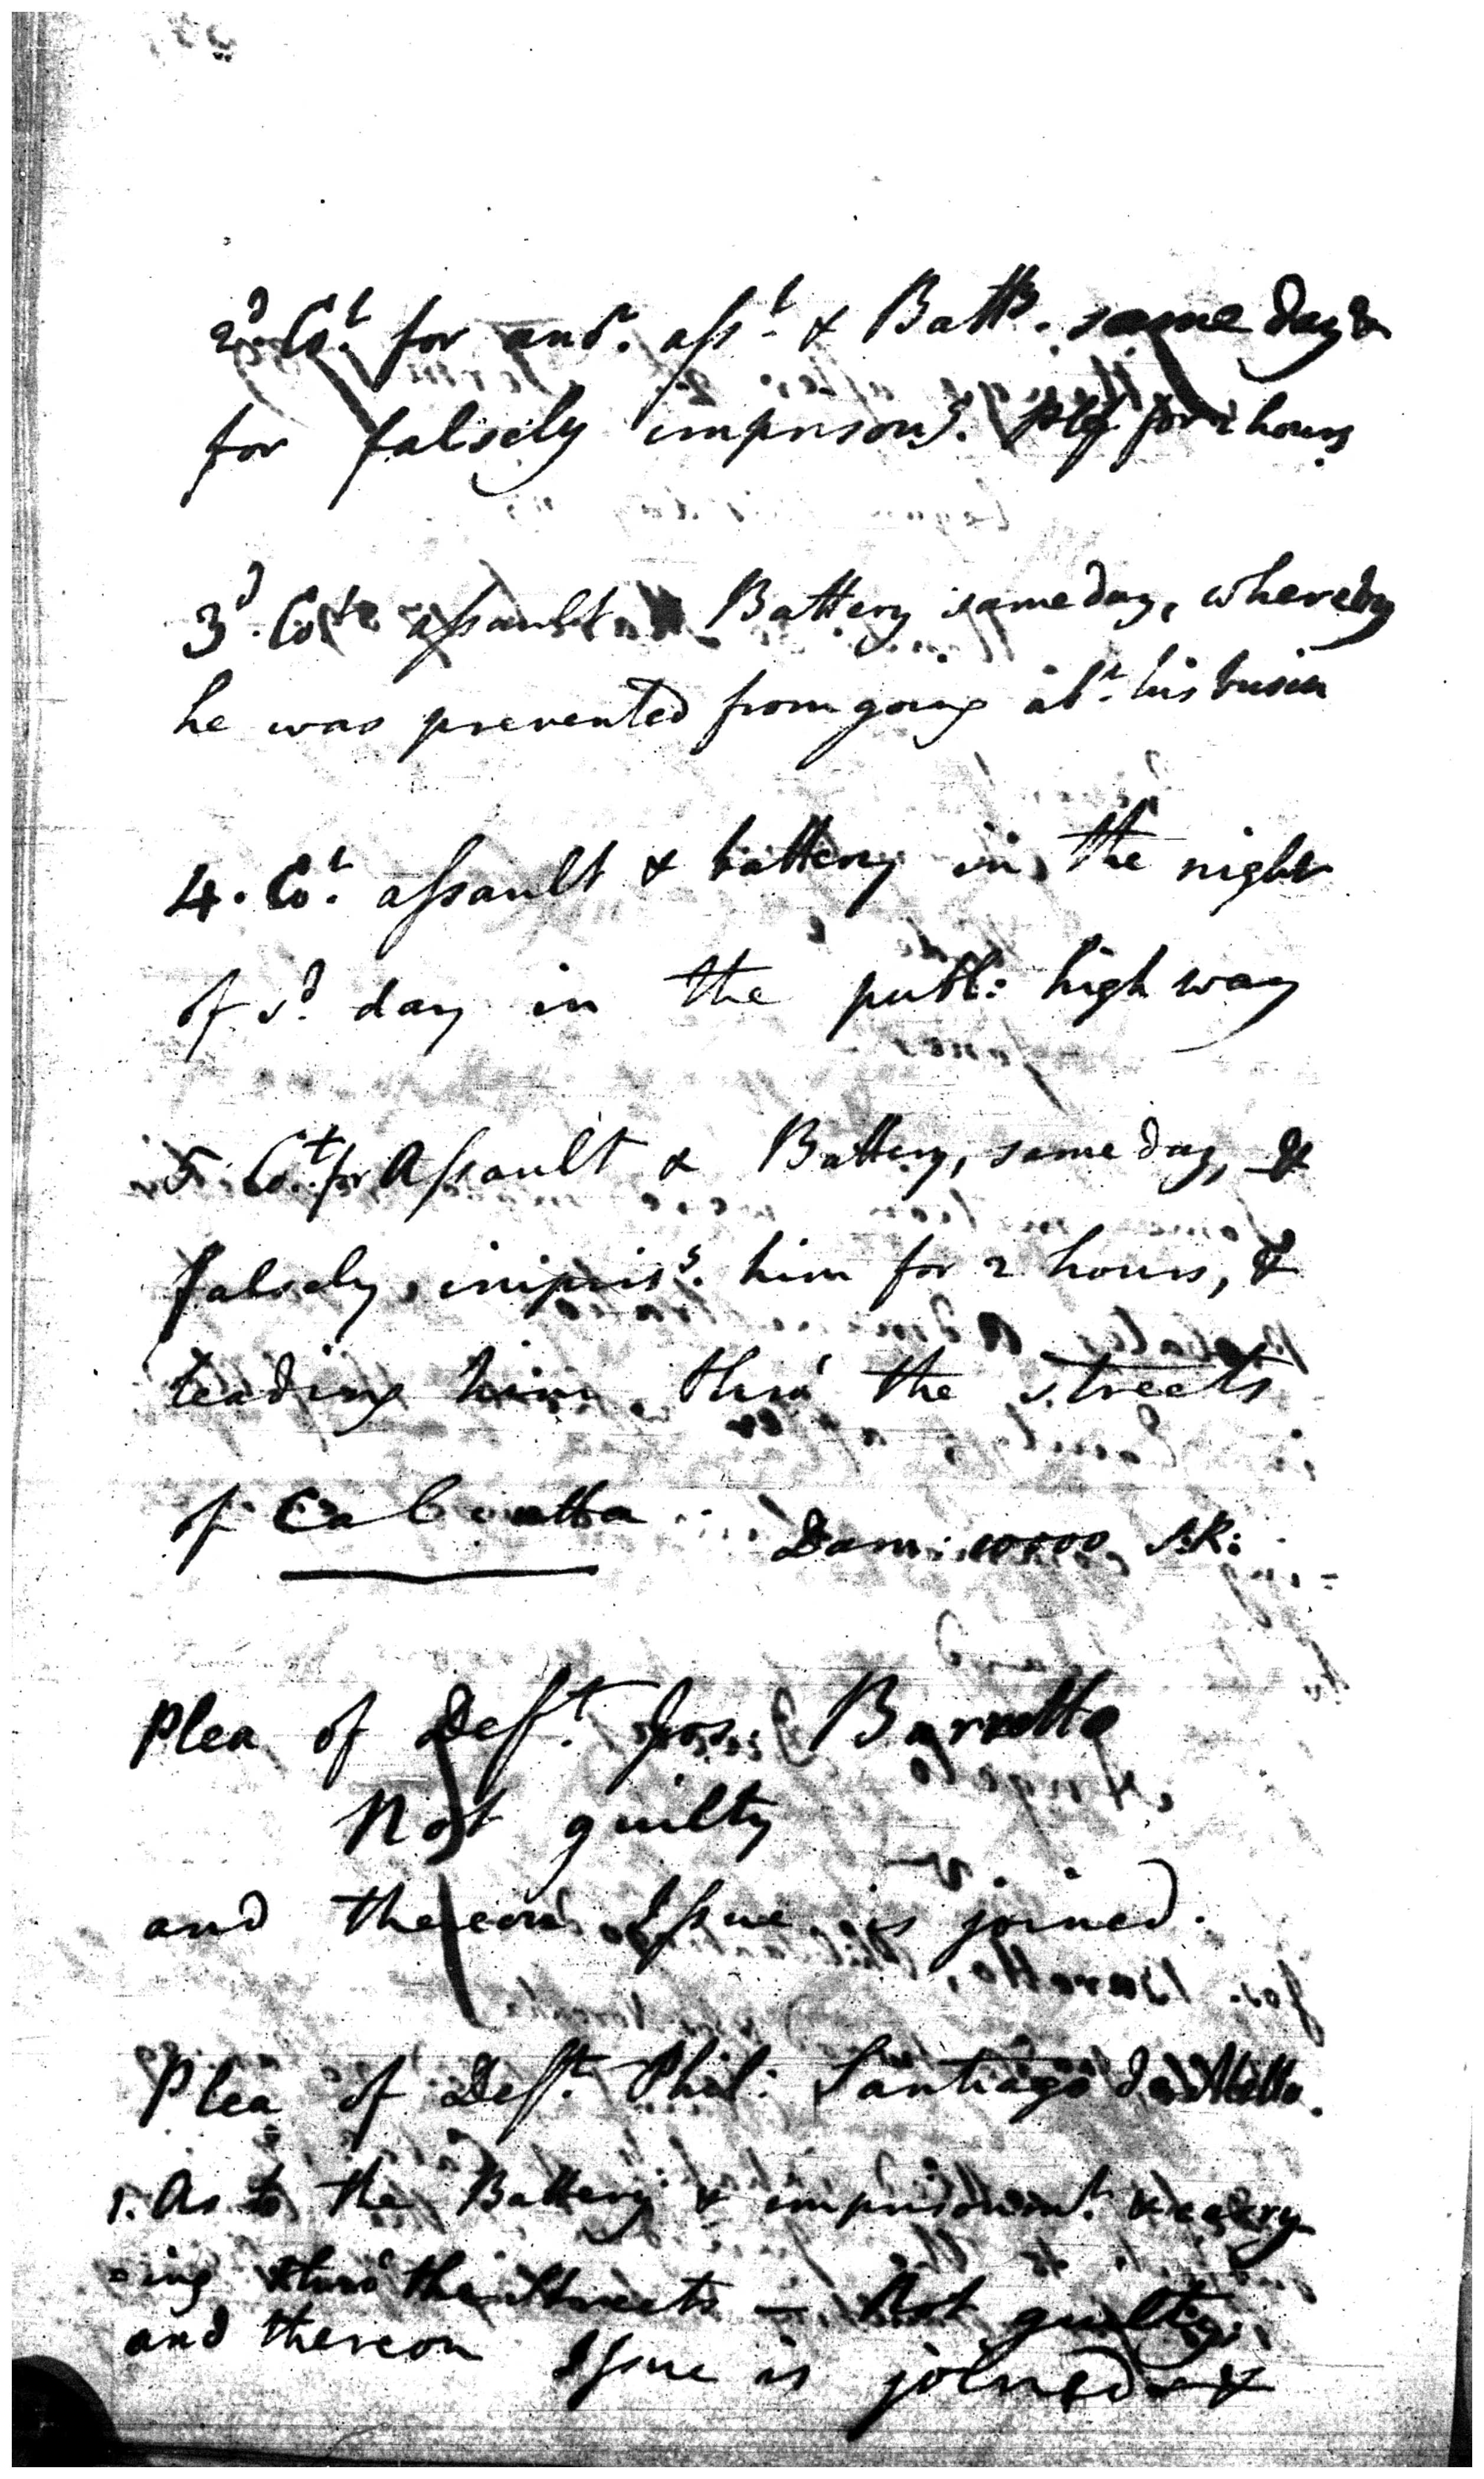 2d. Cot. for anor. asst. & Batty. same day &
for falsely imprisong. Plf for 2 hours
3d. Cot. assault & Battery same day, whereby
he was prevented from going abt. his busin
4. Cot. assault & battery in the night
of sd. day in the publ: high way
5. Cot. for Assault & Battery, same day, &
falsely imprisg. him for 2 hours, &
leading him thro' the streets
of Calcutta Dam: 10000 S.R:
Plea of Deft. Jos: Barretto
Not guilty
and thereon Issue is joined.
Plea of Deft. Phil: Santiago
1. As to the Battery & imprisonmt. & carry
=ing thro' the Streets — Not guilty
and thereon Issue is joined &